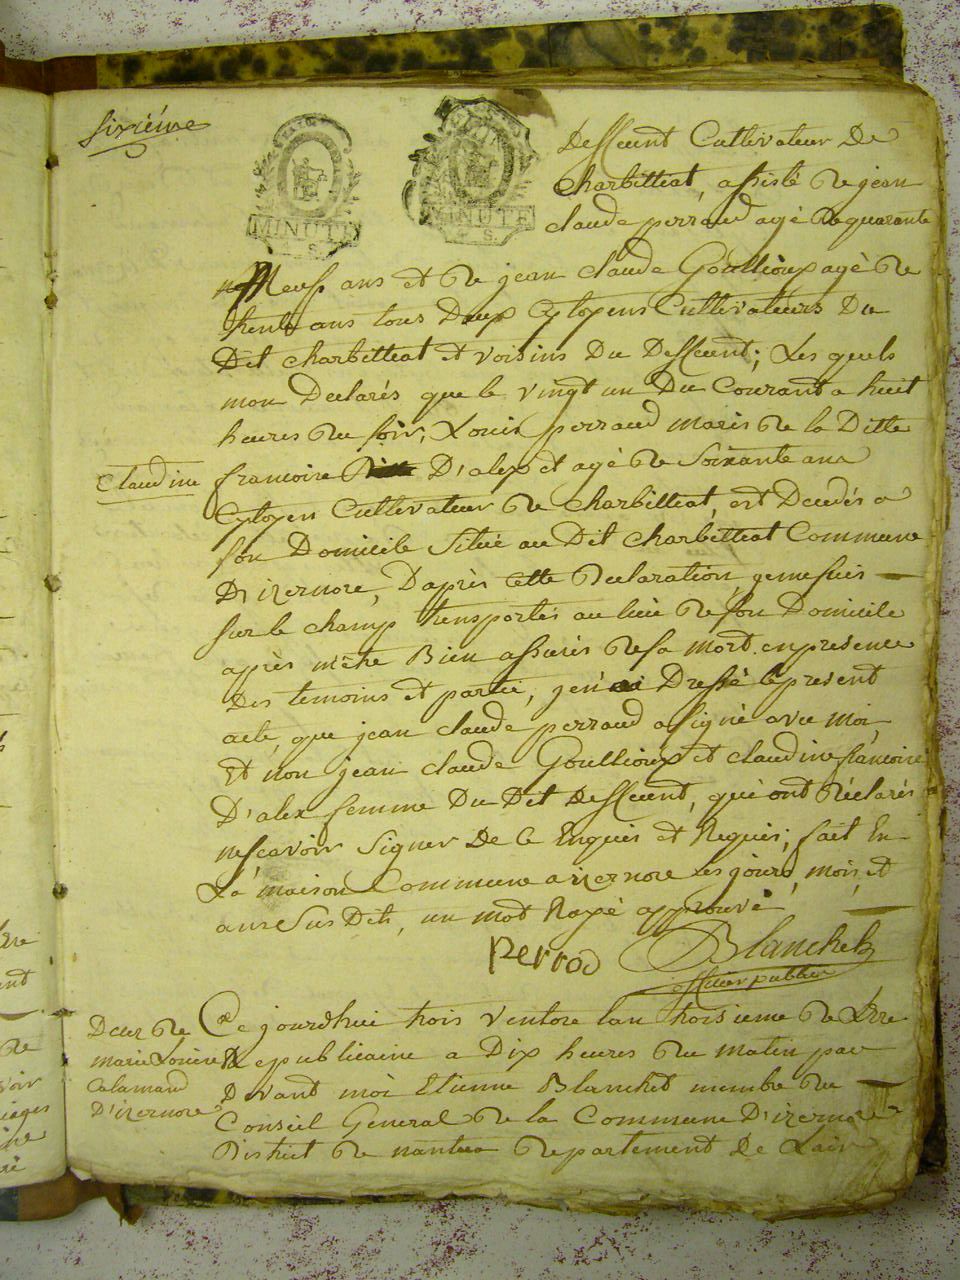 sixiéme
MINUTE
MINUTE
Deffeunt Cultivateur De
Charbilliat, assisté De jean
claude perraud agé de quarante
Neuf ans et De jean claude Goullioux agé De
trente ans tous Deux Cytoyens Cultivateurs Du
Dit Charbilliat et voisins Du Deffeunt; Les quels
mon Declarés que le vingt un Du Courant a huit
heures Du soir, Louis perraud maris De la Ditte
Claudine
francoise D'alex et agé De Soixante ans
Cytoyen Cultivateur De Charbilliat, est Decedés a
son Domicile Situé au Dit Charbilliat Commune
D'izernore, Daprès cette Declaration, je me suis
sur le champ transportés au lieu De son Domicile
après mêtre Bien assurés De sa mort en presence
Des temoins et partie, j'en ai Dressé le present
acte, que jean claude perraud a signé avec moi,
Et non jean claude Goullioux et claudine francoise
D'alex femme Du Dit Deffeunt, qui ont Déclarés
ne scavoir Signer De ce Enquis et Requis; fait En
La maison Commune a izernore Les jours, mois, et
ans Sus Dits, un mot Rayé approuvé
perrod Blanchet
officier public
Deces De
marie Louise
Calamand
D'izernore
Ce jourdhui trois Ventose lan troisieme De Lere
Republicaine a Dix heures Du matin par
Devant moi Etienne Blanchet membre Du
Conseil General De la Commune D'izernore
District De nantua Departement De Lain